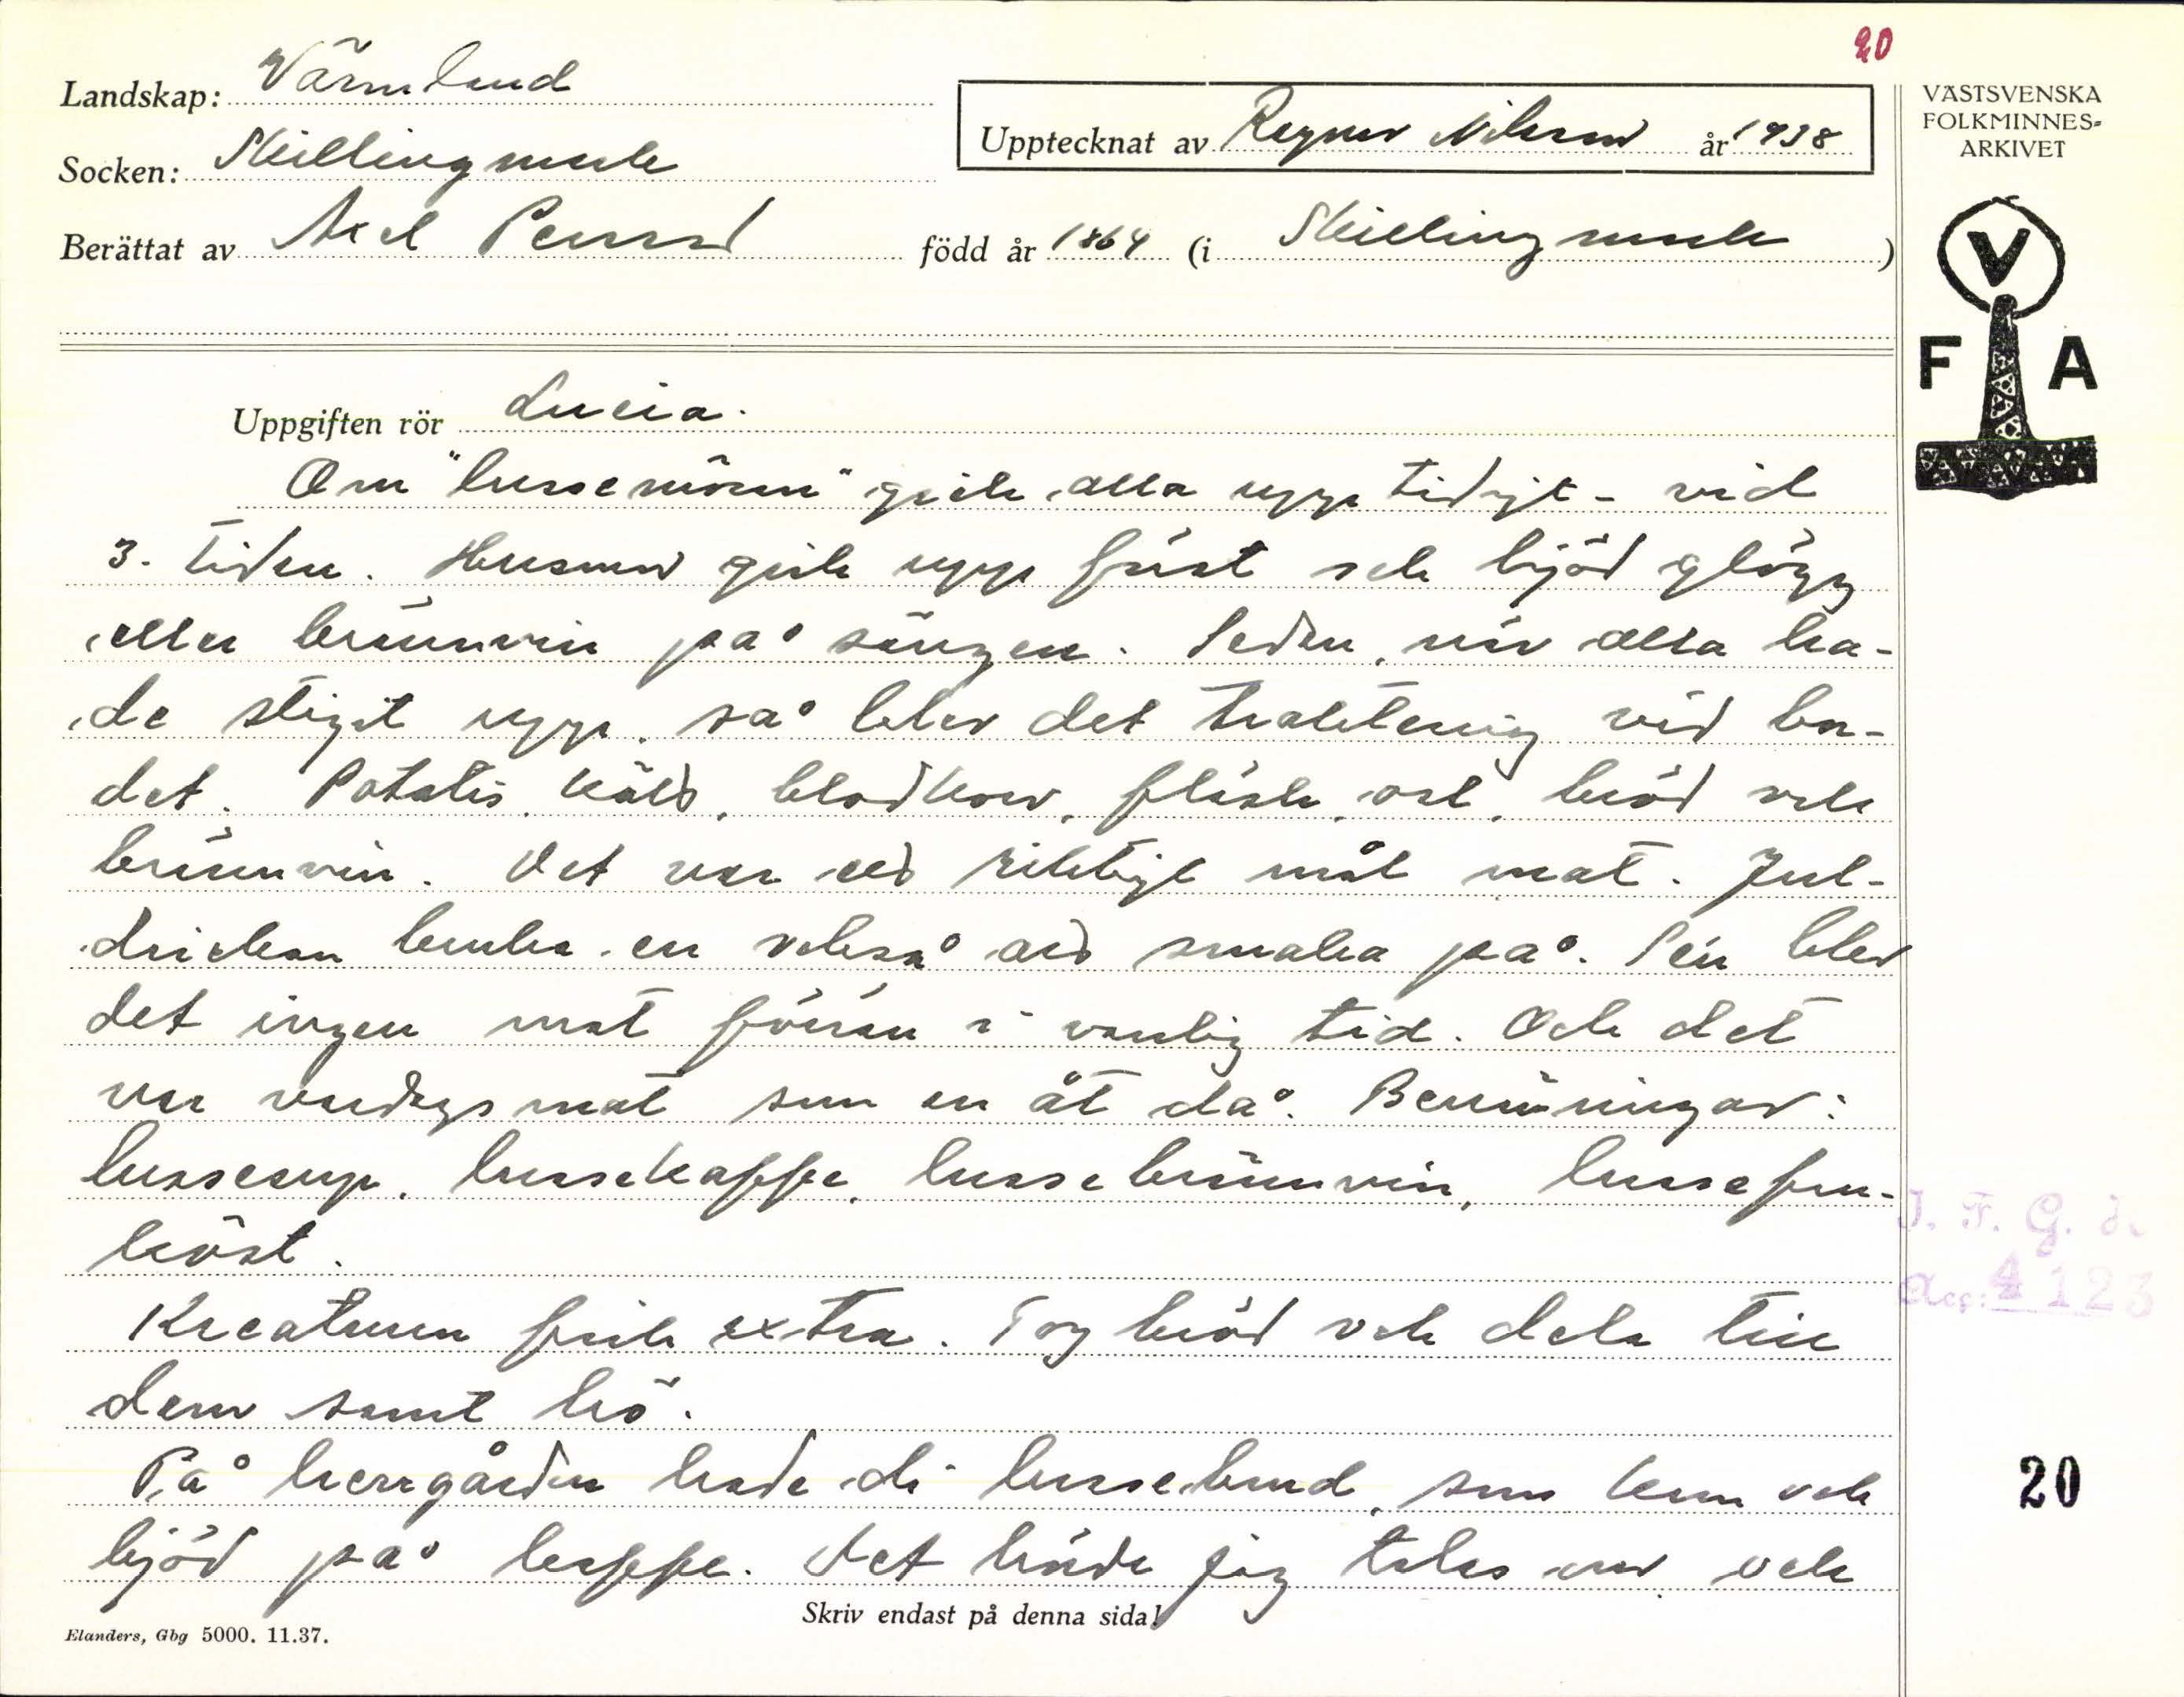 20
Landskap: Värmland
Socken: Skillingmark
Berättat av Axel Persson född år 1864 (i Skillingmark)
Upptecknat av Ragnar Nilsson år 1938
VÄSTSVENSKA
FOLKMINNES-
ARKIVET
V
F A
Uppgiften rör Lucia.
Om "lussemörnn" geck alla upp tidigt - vid
3. tiden. Husmor gick upp först och bjöd glögg
eller brännvin på sängen. Sedan, när alla ha-
de stigit upp, så blev det traktering vid bo-
det. Potatis, kåld, blodkorv, fläsk, ost, bröd och
brännvin. Det var ett riktigt mål mat. Jul-
drickan bruka en också att smaka på. Sen blev
det ingen mat förrän i vanlig tid. Och det
var vardagsmat som en åt då. Benämningar:
lussesup, lussekaffe, lussebrännvin, lussefru-
kost.
Kreaturen fick extra. Tog bröd och dela till
dem samt hö.
På herrgården hade di lussebrud, som kom och
bjöd på kaffe. Det hörde jag talas om och
I. F. G. s.
Acc: 4123
20
Skriv endast på denna sida!
Elanders, Gbg 5000. 11.37.